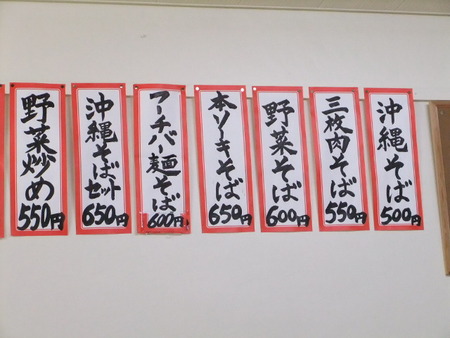 沖縄そば
500円
三枚肉そば
550円
野菜そば
600円
本ソーキそば
650円
フーチバー麺そば
600円
沖縄そばセット
650円
野菜炒め
550円